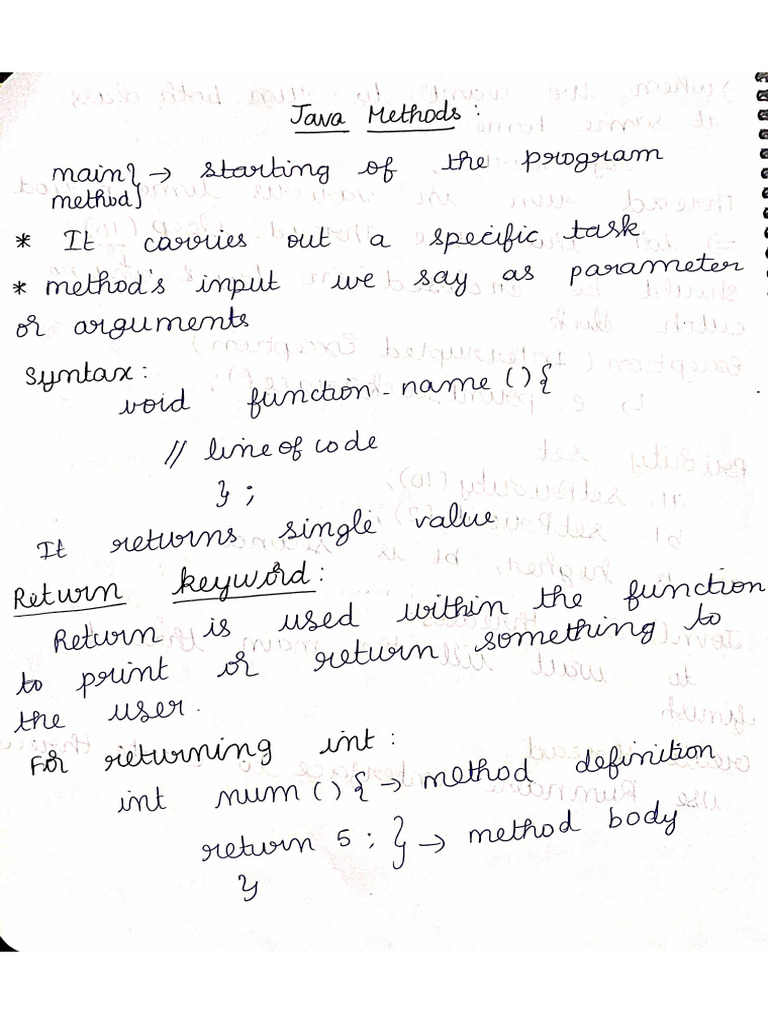 Java Methods :
main} → starting of the program
method}
* It carries out a specific task
* method's input we say as parameter
or arguments
Syntax :
void function-name () {
// line of code
} ;
It returns single value
Return keyword :
Return is used within the function
to print or return something to
the user.
For returning int :
int num () { → method definition
return 5 ; } → method body
}